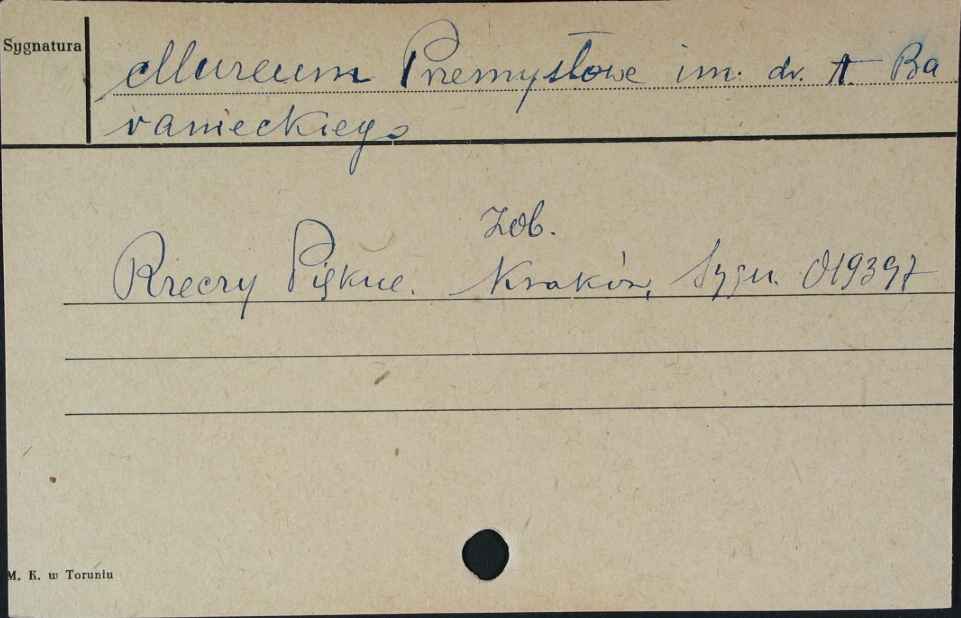 Sygnatura
Muzeum Przemysłowe im. dr. A Ba
ranieckiego
Zob.
Rzeczy Piękne. Kraków, Sygn. 019397
M. K. w Toruniu